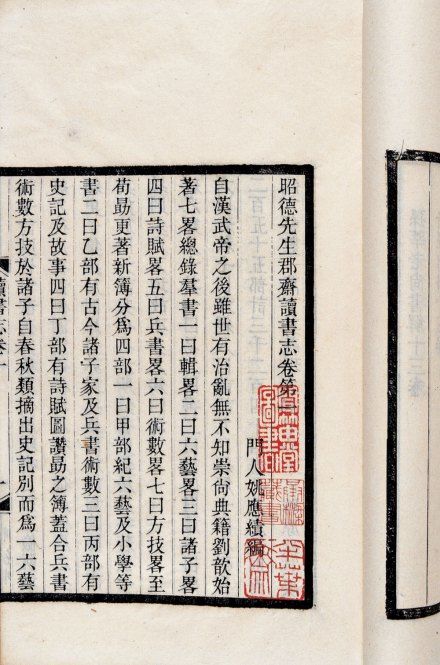 昭德先生郡齋讀書志卷第
門人姚應績編
自漢武帝之後雖世有治亂無不知崇尚典籍劉歆始
著七畧總錄羣書一曰輯畧二曰六藝畧三曰諸子畧
四曰詩賦畧五曰兵書畧六曰術數畧七曰方技畧至
荀勗更著新簿分爲四部一曰甲部紀六藝及小學等
書二曰乙部有古今諸子家及兵書術數三曰丙部有
史記及故事四曰丁部有詩賦圖讚勗之簿蓋合兵書
術數方技於諸子自春秋類摘出史記別而爲一六藝
讀書志卷一